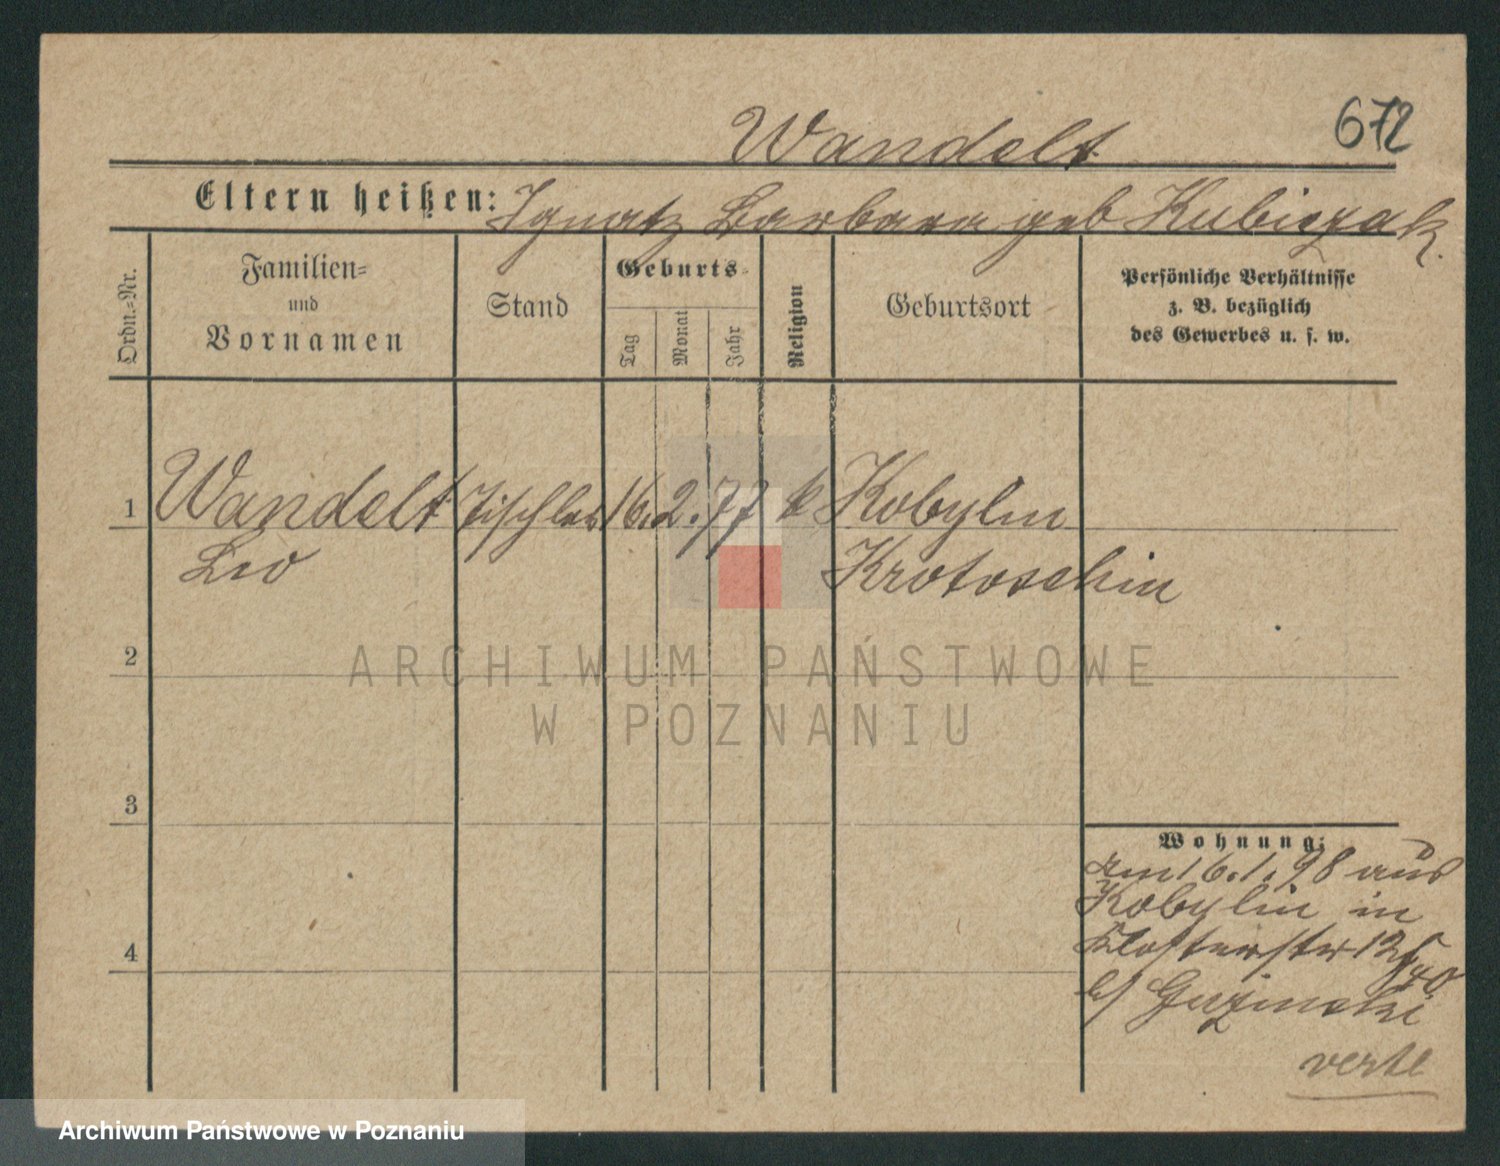 672
Wandelt
Eltern heißen: Ignatz Barbara geb Kubiczak.
Ordn.=Nr.
Familien=
und
Vornamen
Stand
Geburts=
Tag
Monat
Jahr
Religion
Geburtsort
Persönliche Verhältnisse
z. B. bezüglich
des Gewerbes u. s. w.
1 Wandelt Tischler 16. 2. 77 k Kobylin
Leo Krotoschin
2
ARCHIWUM PAŃSTWOWE
W POZNANIU
3
Wohnung:
am 16.1.98 aus
Kobylin in
4
Klosterstr
b/
verte
Archiwum Państwowe w Poznaniu